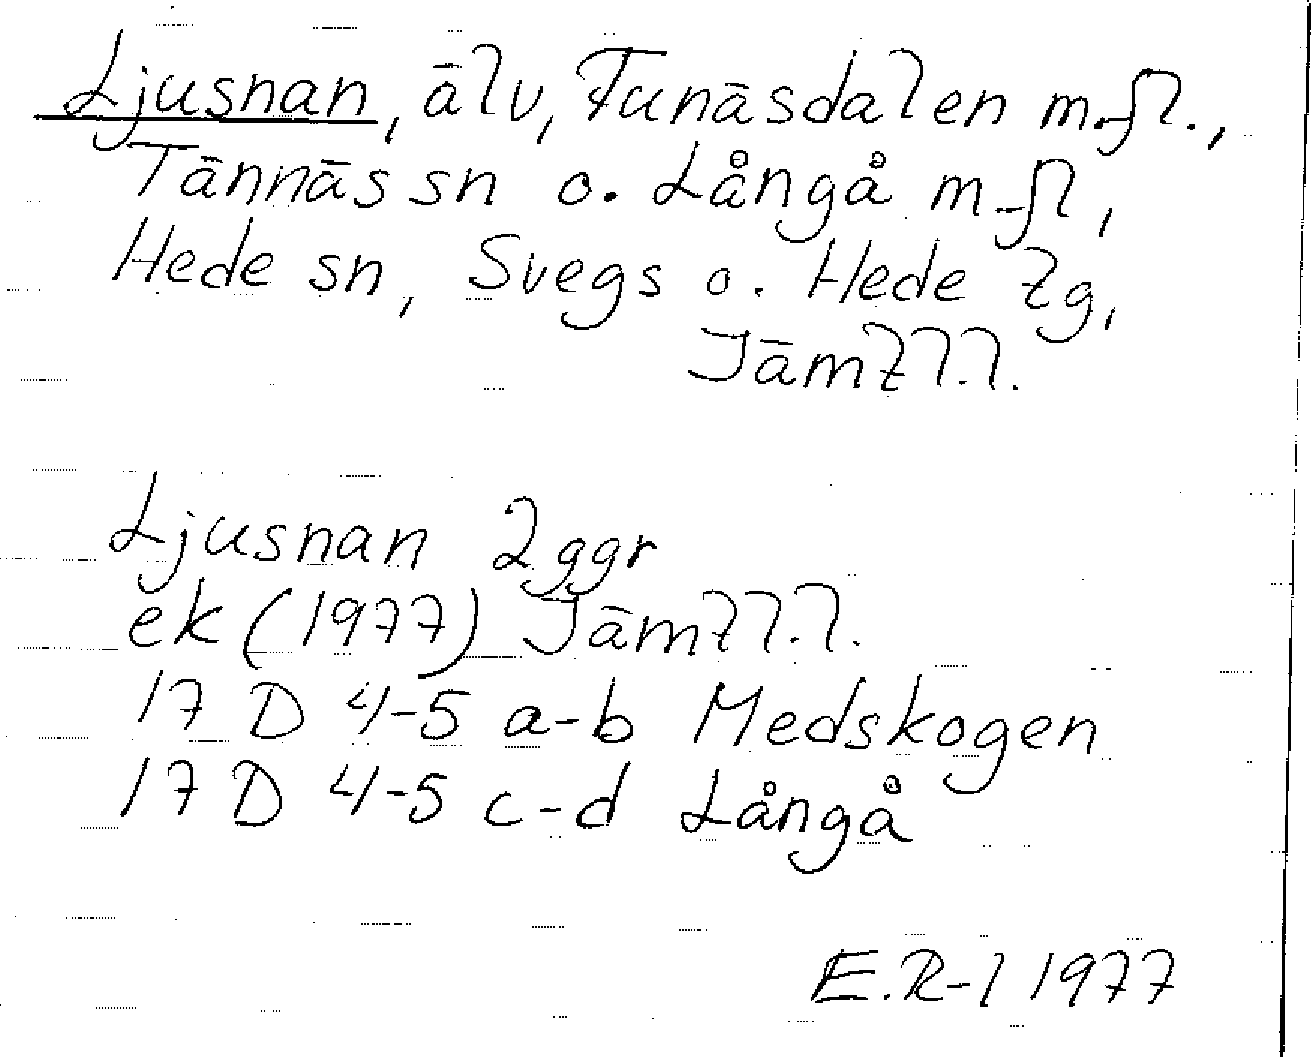 Ljusnan, älv, Funäsdalen m.fl.,
Tännäs sn o. Långå m.fl,
Hede sn, Svegs o. Hede tg,
Jämtl.l.
Ljusnan 2 ggr
ek (1977) Jämtl.l.
17 D 4-5 a-b Medskogen
17 D 4-5 c-d Långå
E.R-l 1977